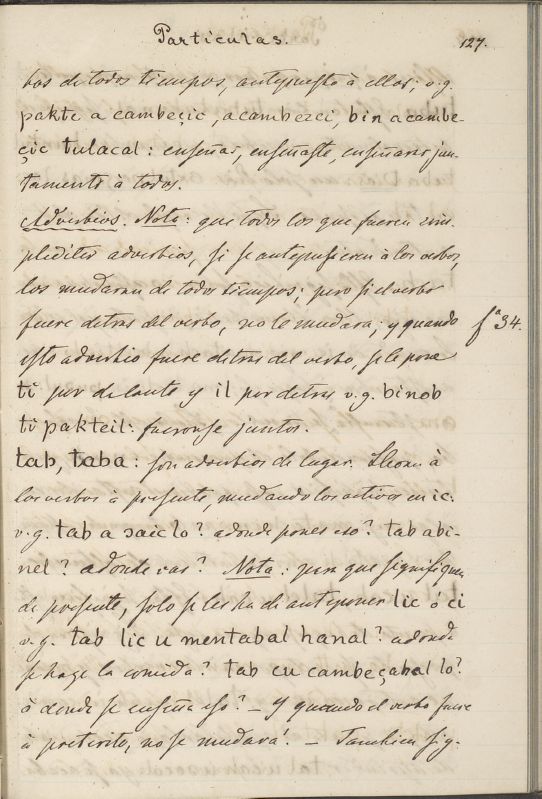 Particulas. 127.
bos de todos tiempos, antepuesto à ellos; v.g.
pakte a cambeçic, acambezci, bin acambe-
çic tulacal: enseñas, enseñaste, enseñaras jun-
tamente à todos.
Adverbios. Nota: que todos los que fueren sim-
pliciter adverbios, si se antepusieren à los verbos,
los mudaran de todos tiempos; pero si el verbo
fuere detras del verbo, no lo mudara; y quando fª 34.
esto adverbio fuere detras del verbo, se le pone
ti por delante y il por detras v.g. binob
ti pakteil: fueronse juntos.
tab, taba: son adverbios de lugar. Lleva à
los verbos à presente, mudando los activos en ic:
v.g. tab a saic lo? adonde pones eso? tab abi-
nel? adonde vas? Nota: para que signifiquen
de presente, solo se les ha de anteponer lic ó ci
v.g. tab lic u mentabal hanal? adonde
se haze la comida? tab cu cambeçabal lo?
à donde se enseña eso? – Y quando el verbo fuere
à preterito, no se mudará. – Tambien sig-